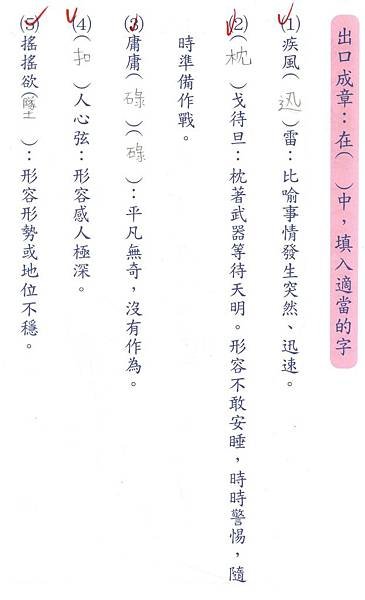 出口成章：在（　）中，填入適當的字
⑴疾風（迅）雷：比喻事情發生突然、迅速。
⑵（枕）戈待旦：枕著武器等待天明。形容不敢安睡，時時警惕，隨
時準備作戰。
⑶庸庸（碌）（碌）：平凡無奇，沒有作為。
⑷（扣）人心弦：形容感人極深。
⑸搖搖欲（墜）：形容形勢或地位不穩。